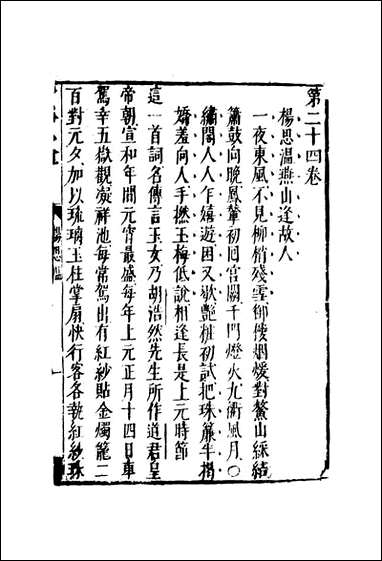 第二十四卷
楊思溫燕山逢故人
一夜東風不見柳梢殘雪御樓烟煖對鰲山綵結
簫鼓向晚鳳輦初回宮闕千門燈火九衢風月○
繡閣人人乍嬉遊困又歇艷粧初試把珠簾半揭
嬌羞向人手撚玉梅低說相逢長是上元時節
這一首詞名傳言玉女乃胡浩然先生所作道君皇
帝朝宣和年間元宵最盛每年上元正月十四日車
駕幸五嶽觀凝祥池每常駕出有紅紗貼金燭籠二
百對元夕加以琉璃玉柱掌扇快行客各執紅紗珠
楊思溫
一